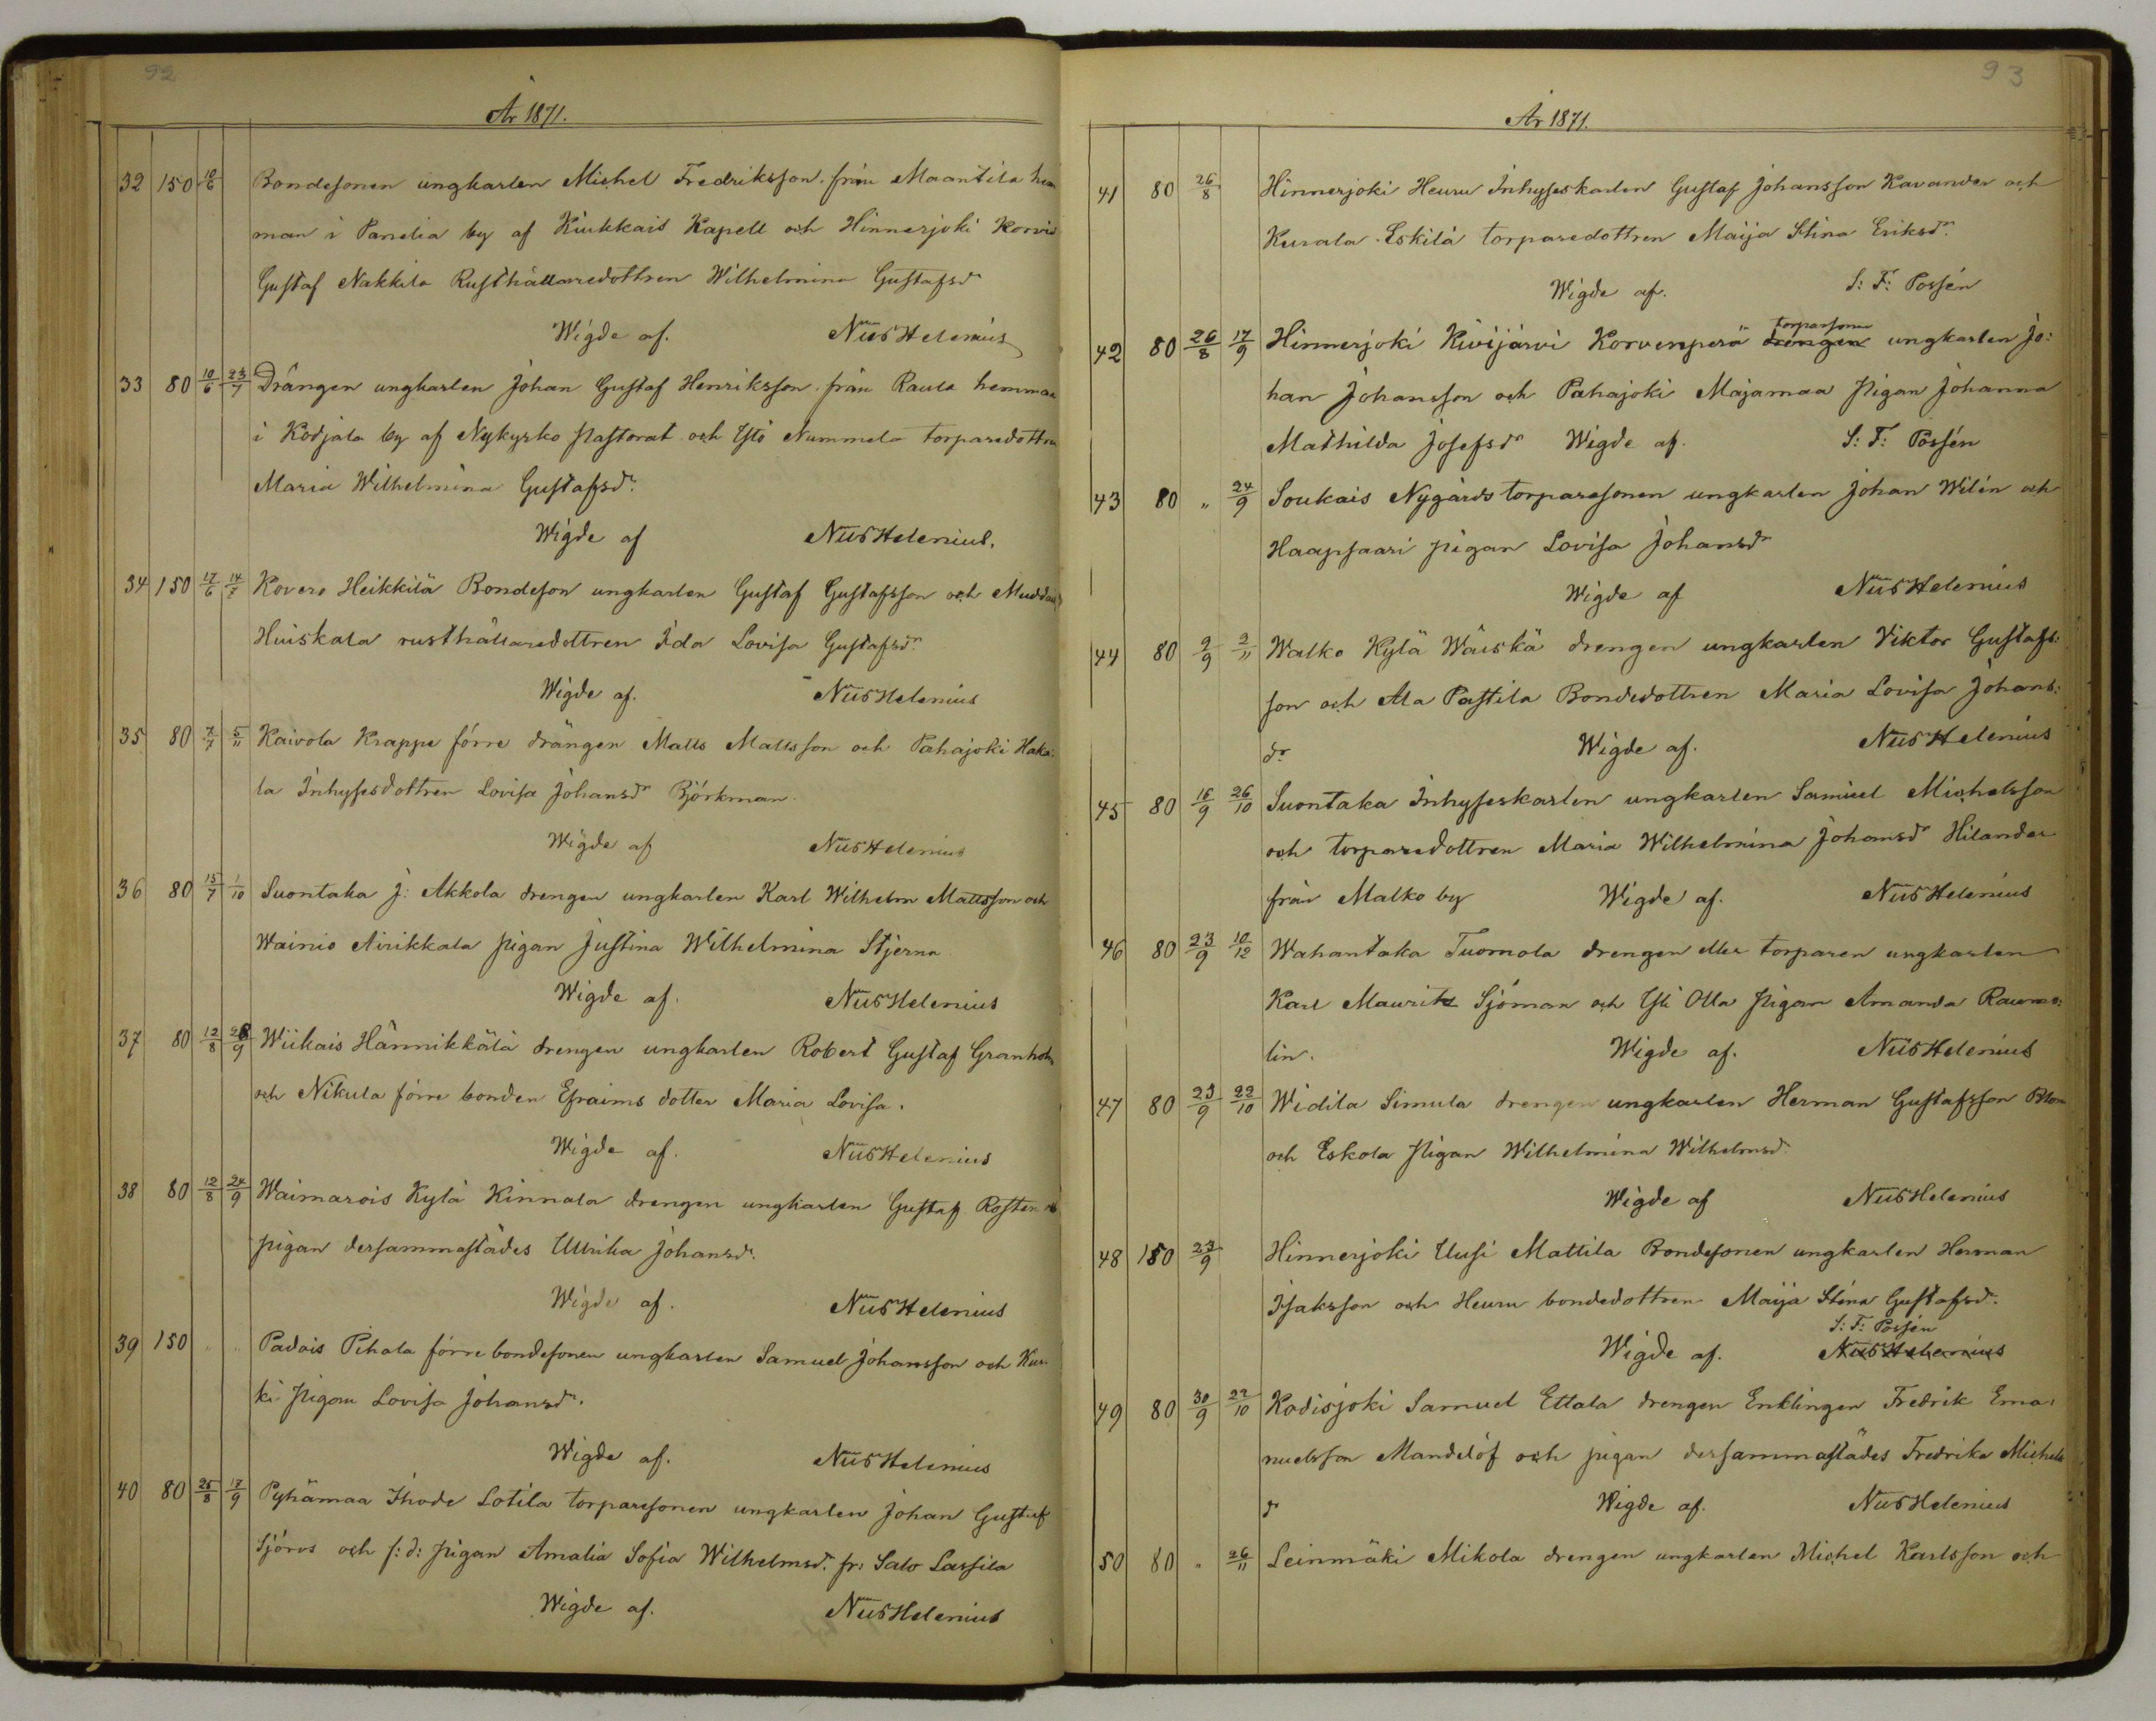 92
År 1871.
32 150 10/6 Bondesonen ungkarlen Michel Fredriksson från Maantila hem
man i Panelia by af Kiukkais Kapell och Hinnerjoki Korvis
Gustaf Nakkila Rusthållaredottren Wilhelmina Gustafsdr
Wigde af. Nils Helenius
33 80 10/6 23/7 Drängen ungkarlen Johan Gustaf Henriksson från Raula hemman
i Kodjala by af Nykyrko Pastorat och Yttö Nummela torparedottren
Maria Wilhelmina Gustafsdr.
Wigde af Nils Helenius.
34 150 17/6 14/7 Kovero Heikkilä Bondeson ungkarlen Gustaf Gustafsson och Muddais
Huiskala rusthållaredottren Ida Lovisa Gustafsdr.
Wigde af. Nils Helenius
35 80 7/7 5/11 Kaivola Krappe förre drängen Matts Mattsson och Pahajoki Haka:
la Inhysesdottren Lovisa Johansdr Björkman.
Wigde af Nils Helenius
36 80 15/7 1/10 Suontaka J: Akkola drengen ungkarlen Karl Wilhelm Mattsson och
Wainio Nirikkala pigan Justina Wilhelmina Stjerna
Wigde af. Nils Helenius
37 80 12/8 28/9 Wiikais Hännikkälä drengen ungkarlen Robert Gustaf Granholm
och Nikula förre bonden Efraims dotter Maria Lovisa.
Wigde af. Nils Helenius
38 80 12/8 24/9 Waimarois Kylä Kinnala drengen ungkarlen Gustaf Rosten och
pigan dersammastädes Ulrika Johansdr.
Wigde af. Nils Helenius
39 150 " " Padois Pihala förre bondesonen ungkarlen Samuel Johansson och Kur:
ki Pigan Lovisa Johansdr.
Wigde af. Nils Helenius
40 80 25/8 17/9 Pyhämaa Ihode Lotila torparesonen ungkarlen Johan Gustaf
Sjöros och f: d: Pigan Amalia Sofia Wilhelmsdr. fr: Salo Lassila
Wigde af. Nils Helenius
93
År 1871.
41 80 26/8 Hinnerjoki Heuru Inhyseskarlen Gustaf Johansson Kavander och
Kurala Eskilä torparedottren Maija Stina Eriksdr.
Wigde af. S: F: Possén
torparsonen
42 80 26/8 17/9 Hinnerjoki Kivijärvi Korvenperä drengen ungkarlen Jo:
han Johansson och Pahajoki Majamaa Pigan Johanna
Mathilda Josefsdr Wigde af. S: F: Possén
43 80 " 24/9 Soukais Nygårds torparesonen ungkarlen Johan Wilén och
Haapsaari pigan Lovisa Johansdr
Wigde af Nils Helenius
44 80 9/9 2/11 Walko Kylä Wäiskä drengen ungkarlen Viktor Gustafs:
son och Ala Pastila Bondedottren Maria Lovisa Johans:
dr Wigde af. Nils Helenius
45 80 16/9 26/10 Suontaka Inhyseskarlen ungkarlen Samuel Michelsson
och torparedottren Maria Wilhelmina Johansdr Hilander
från Malko by Wigde af. Nils Helenius
46 80 23/9 10/12 Wahantaka Tuomola drengen eller torparen ungkarlen
Karl Mauritz Sjöman och Yli Olla Pigan Amanda Raumo:
lin. Wigde af. Nils Helenius
47 80 23/9 22/10 Widila Simula drengen ungkarlen Herman Gustafsson Blom
och Eskola Pigan Wilhelmina Wilhelmsd.
Wigde af Nils Helenius
48 150 23/9 Hinnerjoki Uusi Mattila Bondesonen ungkarlen Herman
Isaksson och Heuru bondedottren Maija Stina Gustafsd.
S: F: Possén
Wigde af. Nils Helenius
49 80 30/9 22/10 Kodisjoki Samuel Ettala drengen Enklingen Fredrik Ema:
nuelsson Mandelöf och pigan dersammastädes Fredrika Michels
dr Wigde af. Nils Helenius
50 80 " 26/11 Leinmäki Mikola drengen ungkarlen Michel Karlsson och